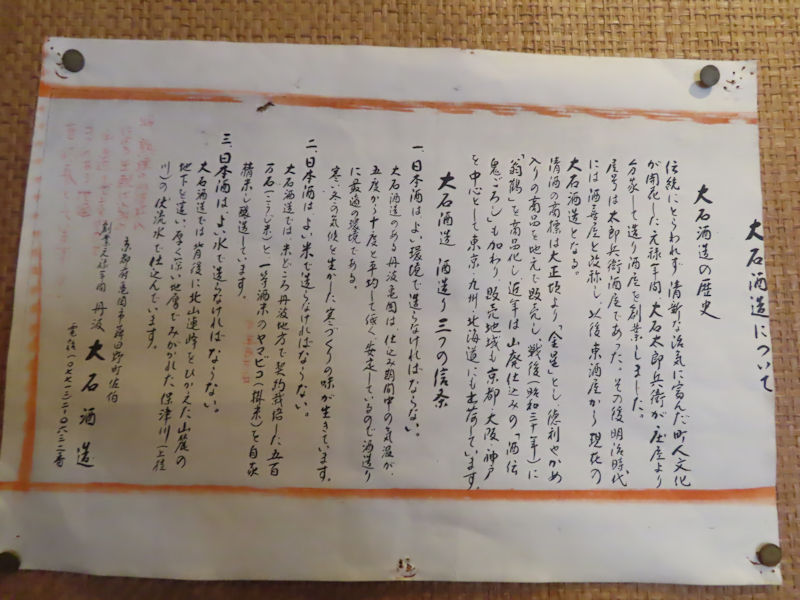 大石酒造について
大石酒造の歴史
伝統にとらわれず清新な活気に富んだ町人文化
が開花した元禄年間 大石太郎兵衛が庄屋より
分家して造り酒屋を創業しました。
屋号は太郎兵衛酒屋であった。その後明治時代
には酒喜屋と改称し、以後東酒屋から現在の
大石酒造となる。
清酒の商標は大正頃より「金星」とし、徳利やかめ
入りの商品を地元で販売し、戦後(昭和三十年)に
「翁鶴」を商品化し近年は山廃仕込みの「酒伝
鬼ごろし」も加わり 販売地域も京都・大阪・神戸
を中心として東京・九州・北海道にも出荷しています。
大石酒造 酒造り三つの信条
一、日本酒は、よい環境で造らなければならない。
大石酒造のある丹波亀岡は、仕込み期間中の気温が、
五度から十度と平均して低く、安定しているので酒造り
に最適の環境である。
寒い冬の気候を生かした、寒づくりの味が生きています。
二、日本酒は、よい米で造らなければならない。
大石酒造では、米どころ丹波地方で契約栽培した五百
万石(こうじ米)と、一等酒米のヤマビコ(掛米)を自家
精米し醸造しています。
三、日本酒は、よい水で造らなければならない。
大石酒造では、背後に北山連峰をひかえた山麓の
地下を這い、厚く深い地層でみがかれた、保津川(上桂
川)の伏流水で仕込んでいます。
京都府亀岡市稗田野町佐伯
創業元禄年間 丹波 大石酒造
電話(〇七七一)二二-〇六三二番